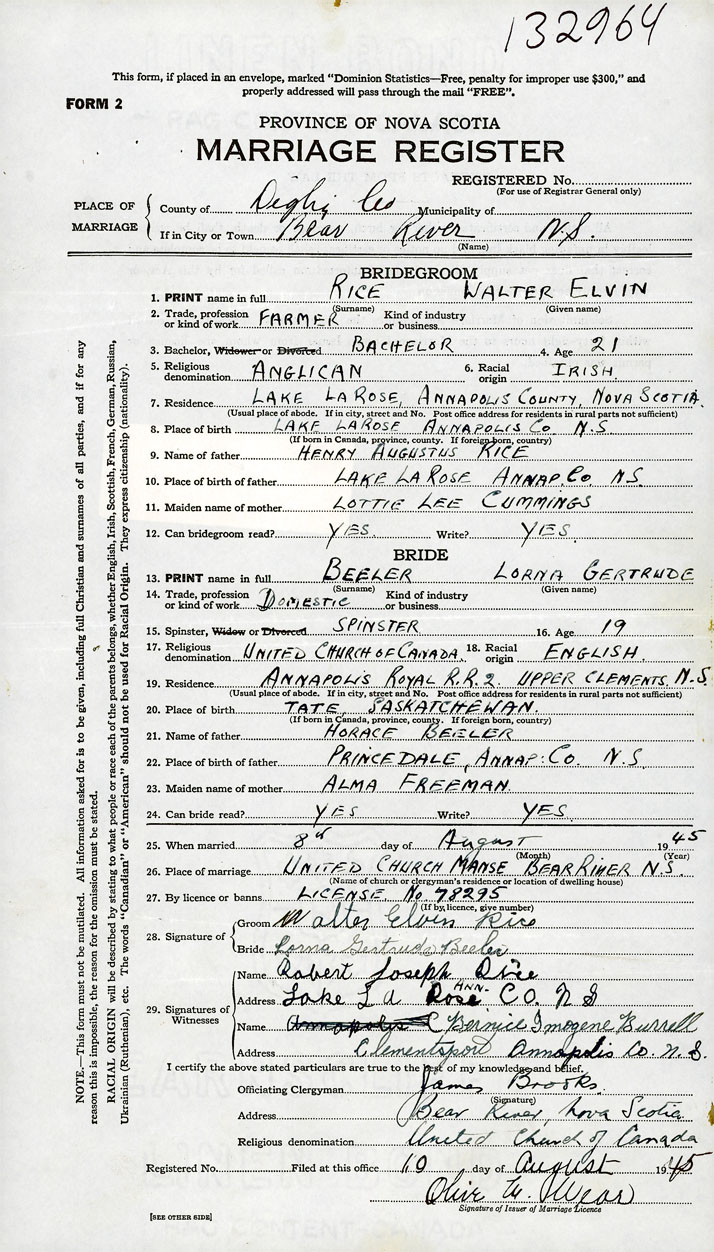 132964
This form, if placed in an envelope, marked "Dominion Statistics—Free, penalty for improper use $300," and
properly addressed will pass through the mail "FREE".
FORM 2
PROVINCE OF NOVA SCOTIA
MARRIAGE REGISTER
REGISTERED No.
(For use of Registrar General only)
PLACE OF MARRIAGE
County of Digby Co Municipality of
If in City or Town Bear River N.S.
(Name)
BRIDEGROOM
1. PRINT name in full RICE WALTER ELVIN
(Surname) (Given name)
2. Trade, profession or kind of work FARMER Kind of industry or business
3. Bachelor, Widower or Divorced BACHELOR 4. Age 21
5. Religious denomination ANGLICAN 6. Racial origin IRISH
7. Residence LAKE LAROSE, ANNAPOLIS COUNTY, NOVA SCOTIA.
(Usual place of abode. If in city, street and No. Post office address for residents in rural parts not sufficient)
8. Place of birth LAKE LAROSE ANNAPOLIS Co N.S
(If born in Canada, province, county. If foreign born, country)
9. Name of father HENRY AUGUSTUS RICE
10. Place of birth of father LAKE LA ROSE ANNAP. Co. N.S.
11. Maiden name of mother LOTTIE LEE CUMMINGS
12. Can bridegroom read? YES. Write? YES.
BRIDE
13. PRINT name in full BEELER LORNA GERTRUDE
(Surname) (Given name)
14. Trade, profession or kind of work DOMESTIC Kind of industry or business
15. Spinster, Widow or Divorced SPINSTER 16. Age 19
17. Religious denomination UNITED CHURCH OF CANADA. 18. Racial origin ENGLISH.
19. Residence ANNAPOLIS ROYAL R.R.2. UPPER CLEMENTS. N.S.
(Usual place of abode. If in city, street and No. Post office address for residents in rural parts not sufficient)
20. Place of birth TATE, SASKATCHEWAN.
(If born in Canada, province, county. If foreign born, country)
21. Name of father HORACE BEELER
22. Place of birth of father PRINCEDALE, ANNAP: Co. N.S.
23. Maiden name of mother ALMA FREEMAN.
24. Can bride read? YES Write? YES.
25. When married 8th day of August 1945
(Month) (Year)
26. Place of marriage UNITED CHURCH MANSE BEAR RIVER N.S.
(Name of church or clergyman's residence or location of dwelling house)
27. By licence or banns LICENSE. No 78295
(If by licence, give number)
28. Signature of
Groom Walter Elvin Rice
Bride Lorna Gertrude Beeler
29. Signatures of Witnesses
Name Robert Joseph Rice
Address Lake La Rose ANN. Co. N S
Name Annapolis C Bernice Imogene Burrell
Address Clementsport Annapolis Co. N. S.
I certify the above stated particulars are true to the best of my knowledge and belief.
Officiating Clergyman James Brooks.
(Signature)
Address Bear River, Nova Scotia
Religious denomination United Church of Canada
Registered No. Filed at this office 10 day of August 1945
Signature of Issuer of Marriage Licence
[SEE OTHER SIDE]
NOTE.—This form must not be mutilated. All information asked for is to be given, including full Christian and surnames of all parties, and if for any
reason this is impossible, the reason for the omission must be stated.
RACIAL ORIGIN will be described by stating to what people or race each of the parents belongs, whether English, Irish, Scottish, French, German, Russian,
Ukrainian (Ruthenian), etc. The words "Canadian" or "American" should not be used for Racial Origin. They express citizenship (nationality).